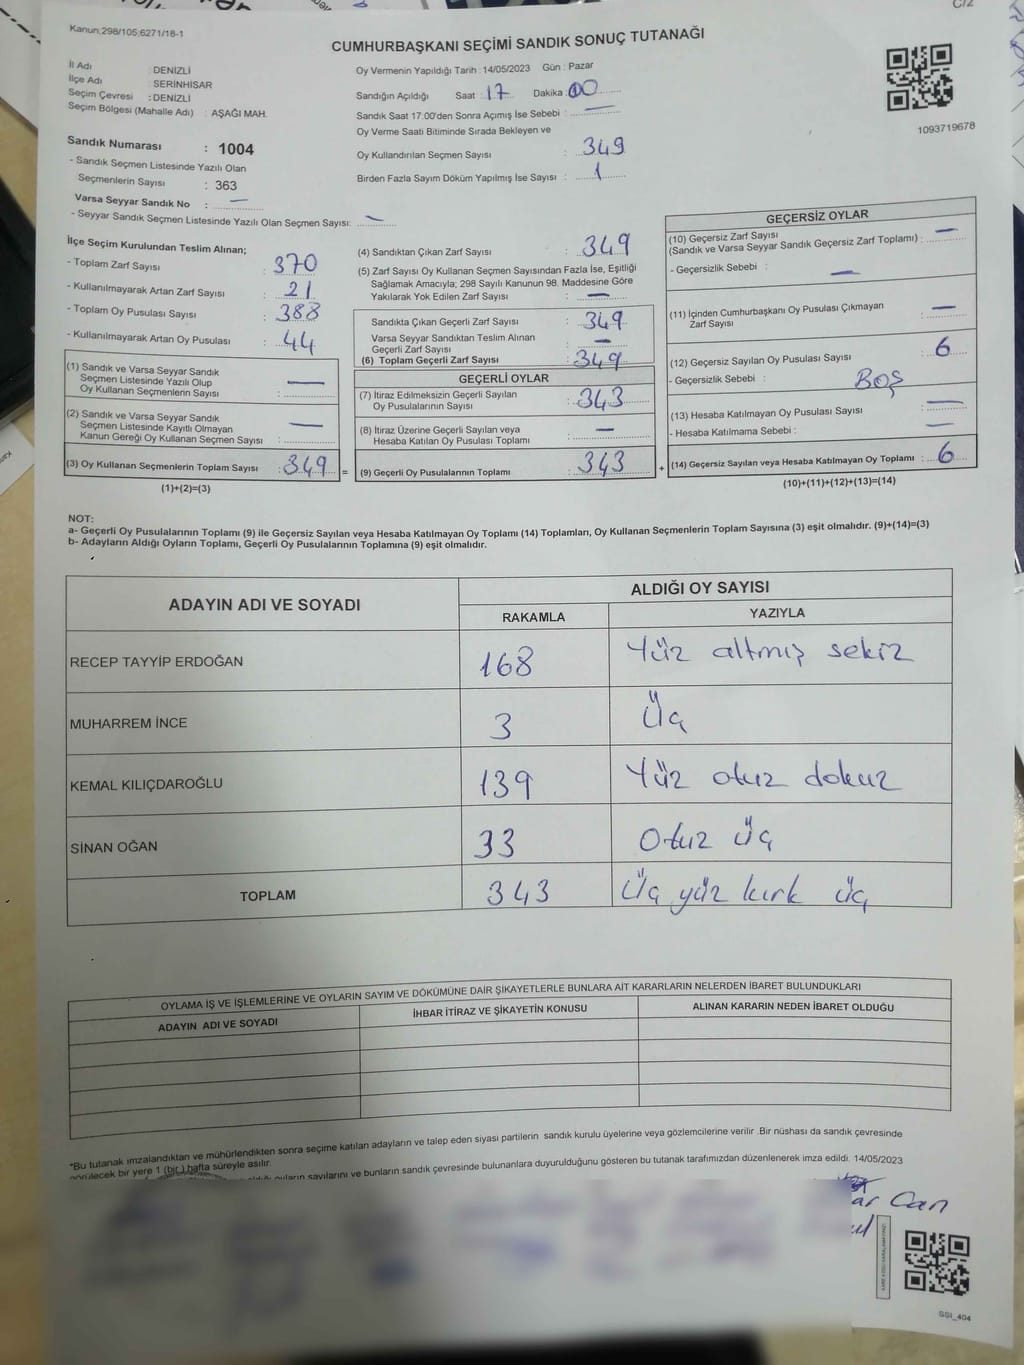 C/2
Kanun,298/105;6271/18-1
CUMHURBAŞKANI SEÇİMİ SANDIK SONUÇ TUTANAĞI
İl Adı : DENİZLİ
İlçe Adı : SERİNHİSAR
Seçim Çevresi : DENİZLİ
Seçim Bölgesi (Mahalle Adı) : AŞAĞI MAH.
Oy Vermenin Yapıldığı Tarih : 14/05/2023 Gün : Pazar
Sandığın Açıldığı Saat : 17 Dakika : 00
Sandık Saat 17.00'den Sonra Açımış İse Sebebi : —
Oy Verme Saati Bitiminde Sırada Bekleyen ve
Oy Kullandırılan Seçmen Sayısı : 349
Birden Fazla Sayım Döküm Yapılmış İse Sayısı : 1
1093719678
Sandık Numarası : 1004
- Sandık Seçmen Listesinde Yazılı Olan
Seçmenlerin Sayısı : 363
Varsa Seyyar Sandık No : —
- Seyyar Sandık Seçmen Listesinde Yazılı Olan Seçmen Sayısı: —
İlçe Seçim Kurulundan Teslim Alınan;
- Toplam Zarf Sayısı : 370
- Kullanılmayarak Artan Zarf Sayısı : 21
- Toplam Oy Pusulası Sayısı : 388
- Kullanılmayarak Artan Oy Pusulası : 44
(1) Sandık ve Varsa Seyyar Sandık
Seçmen Listesinde Yazılı Olup
Oy Kullanan Seçmenlerin Sayısı : —
(2) Sandık ve Varsa Seyyar Sandık
Seçmen Listesinde Kayıtlı Olmayan
Kanun Gereği Oy Kullanan Seçmen Sayısı : —
(3) Oy Kullanan Seçmenlerin Toplam Sayısı : 349 =
(1)+(2)=(3)
(4) Sandıktan Çıkan Zarf Sayısı : 349
(5) Zarf Sayısı Oy Kullanan Seçmen Sayısından Fazla İse, Eşitliği
Sağlamak Amacıyla; 298 Sayılı Kanunun 98. Maddesine Göre
Yakılarak Yok Edilen Zarf Sayısı : —
Sandıkta Çıkan Geçerli Zarf Sayısı : 349
Varsa Seyyar Sandıktan Teslim Alınan
Geçerli Zarf Sayısı : —
(6) Toplam Geçerli Zarf Sayısı : 349
GEÇERLİ OYLAR
(7) İtiraz Edilmeksizin Geçerli Sayılan
Oy Pusulalarının Sayısı : 343
(8) İtiraz Üzerine Geçerli Sayılan veya
Hesaba Katılan Oy Pusulası Toplamı : —
(9) Geçerli Oy Pusulalarının Toplamı : 343 +
GEÇERSİZ OYLAR
(10) Geçersiz Zarf Sayısı
(Sandık ve Varsa Seyyar Sandık Geçersiz Zarf Toplamı) : —
- Geçersizlik Sebebi : —
(11) İçinden Cumhurbaşkanı Oy Pusulası Çıkmayan
Zarf Sayısı : —
(12) Geçersiz Sayılan Oy Pusulası Sayısı : 6
- Geçersizlik Sebebi : BOŞ
(13) Hesaba Katılmayan Oy Pusulası Sayısı : —
- Hesaba Katılmama Sebebi : —
(14) Geçersiz Sayılan veya Hesaba Katılmayan Oy Toplamı : 6
(10)+(11)+(12)+(13)=(14)
NOT:
a- Geçerli Oy Pusulalarının Toplamı (9) ile Geçersiz Sayılan veya Hesaba Katılmayan Oy Toplamı (14) Toplamları, Oy Kullanan Seçmenlerin Toplam Sayısına (3) eşit olmalıdır. (9)+(14)=(3)
b- Adayların Aldığı Oyların Toplamı, Geçerli Oy Pusulalarının Toplamına (9) eşit olmalıdır.
ADAYIN ADI VE SOYADI
ALDIĞI OY SAYISI
RAKAMLA YAZIYLA
RECEP TAYYİP ERDOĞAN 168 Yüz altmış sekiz
MUHARREM İNCE 3 Üç
KEMAL KILIÇDAROĞLU 139 Yüz otuz dokuz
SİNAN OĞAN 33 Otuz üç
TOPLAM 343 Üç yüz kırk üç
OYLAMA İŞ VE İŞLEMLERİNE VE OYLARIN SAYIM VE DÖKÜMÜNE DAİR ŞİKAYETLERLE BUNLARA AİT KARARLARIN NELERDEN İBARET BULUNDUKLARI
ADAYIN ADI VE SOYADI İHBAR İTİRAZ VE ŞİKAYETİN KONUSU ALINAN KARARIN NEDEN İBARET OLDUĞU
*Bu tutanak imzalandıktan ve mühürlendikten sonra seçime katılan adayların ve talep eden siyasi partilerin sandık kurulu üyelerine veya gözlemcilerine verilir .Bir nüshası da sandık çevresinde
görülecek bir yere 1 (bir ) hafta süreyle asılır.
oyların sayılarını ve bunların sandık çevresinde bulunanlara duyurulduğunu gösteren bu tutanak tarafımızdan düzenlenerek imza edildi. 14/05/2023
ar Can
SSI_404